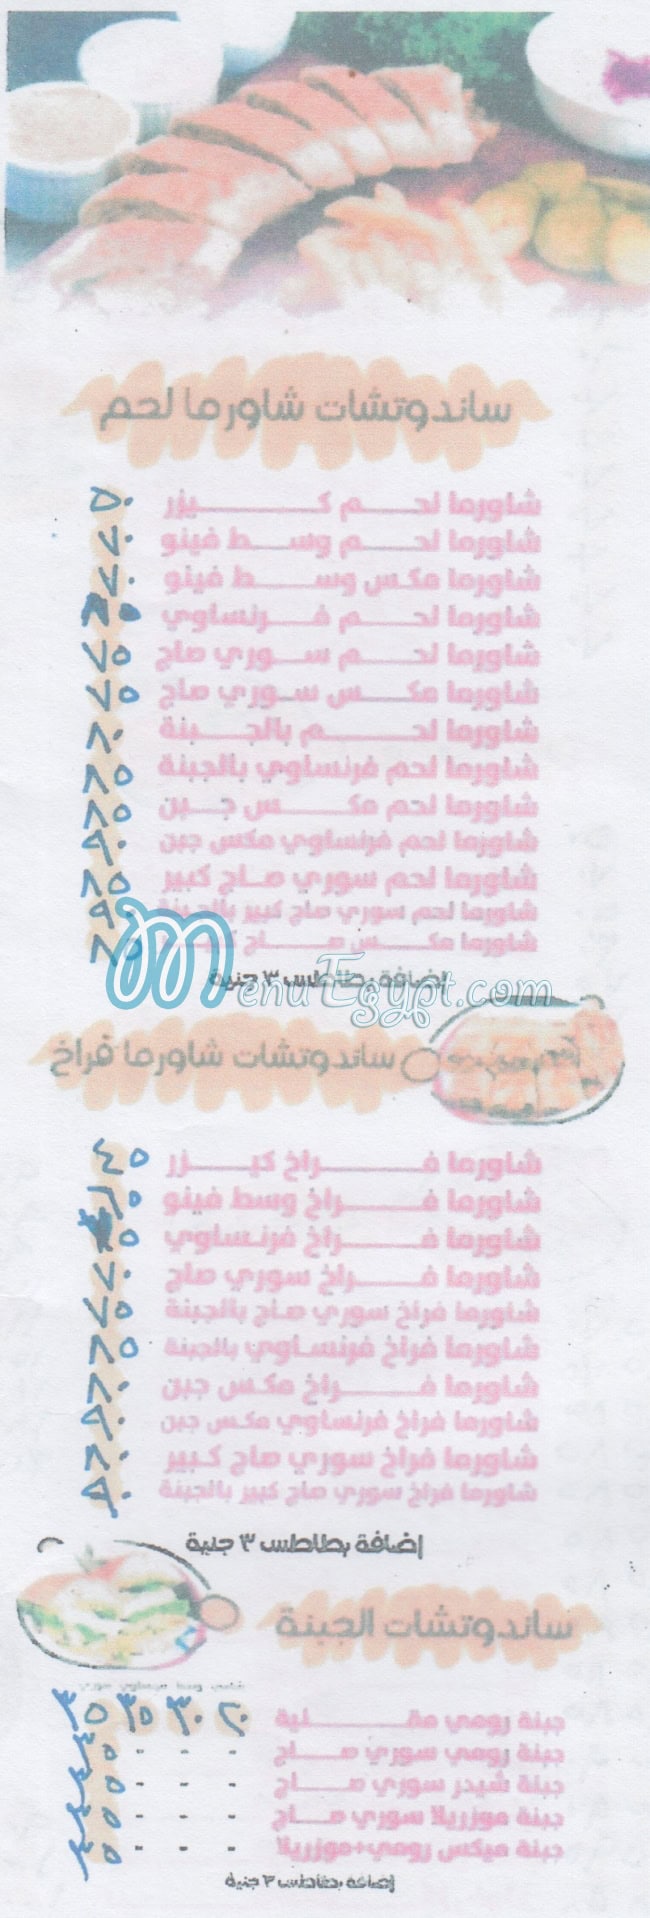 ساندوتشات شاورما لحم
شاورما لحم كيزر ٥٠
شاورما لحم وسط فينو ٧٠
شاورما مكس وسط فينو ٧٠
شاورما لحم فرنساوي
شاورما لحم سوري صاج ٧٥
شاورما مكس سوري صاج ٧٥
شاورما لحم بالجبنة ٨٠
شاورما لحم فرنساوي بالجبنة ٨٥
شاورما لحم مكس جبن ٨٥
شاورما لحم فرنساوي مكس جبن ٩٠
شاورما لحم سوري صاج كبير ٨٥
شاورما لحم سوري صاج كبير بالجبنة ٩٠
شاورما مكس صاج ٨٥
إضافة بطاطس ٣ جنية
MenuEgypt.com
ساندوتشات شاورما فراخ
شاورما فراخ كيزر ٤٥
شاورما فراخ وسط فينو ٦٥
شاورما فراخ فرنساوي
شاورما فراخ سوري صاج ٧٠
شاورما فراخ سوري صاج بالجبنة ٧٥
شاورما فراخ فرنساوي بالجبنة ٨٥
شاورما فراخ مكس جبن ٨٠
شاورما فراخ فرنساوي مكس جبن ٩٠
شاورما فراخ سوري صاج كبير ٨٠
شاورما فراخ سوري صاج كبير بالجبنة ٩٠
إضافة بطاطس ٣ جنية
ساندوتشات الجبنة
شامي وسط فرنساوي سوري
جبنة رومي مقلية ٢٠ ٣٠ ٣٥ ٣٥
جبنة رومي سوري صاج - - - ٤٥
جبنة شيدر سوري صاج - - - ٤٥
جبنة موزريلا سوري صاج - - - ٤٥
جبنة ميكس رومي+موزريلا - - - ٤٥
إضافة بطاطس ٣ جنية